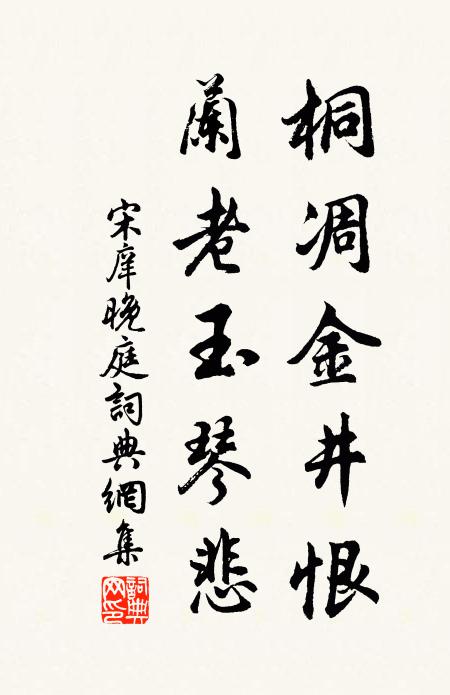 桐凋金井恨
蘭老玉琴悲
宋庠晚庭詞典網集
詞典网印